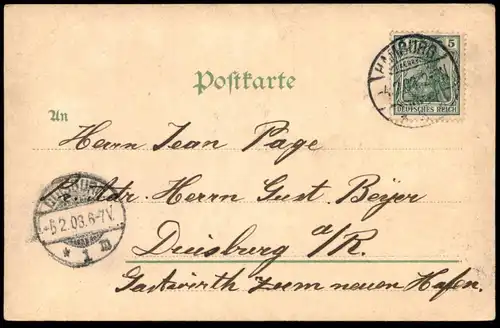 Postkarte
HAMBURG
5
DEUTSCHES REICH
An
Herrn Jean Page
p. Adr. Herrn Gust. Beyer
DUISBURG
-5.2.03.6-7V.
* 1 m
Duisburg a/R.
Gastwirth zum neuen Hafen.